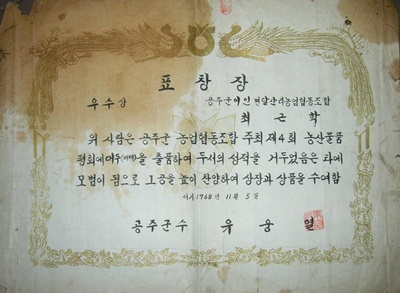 표창장
우수상
공주군이인면달산리농업협동조합
최근학
위 사람은 공주군 농업협동조합 주최 제4회 농산물품
평회에 (벼)을 출품하여 두서의 성적을 거두었음은 타에
모범이 됨으로 그 공을 높이 찬양하여 상장과 상품을 수여함
서기 1968년 11월 5일
공주군수 유웅열